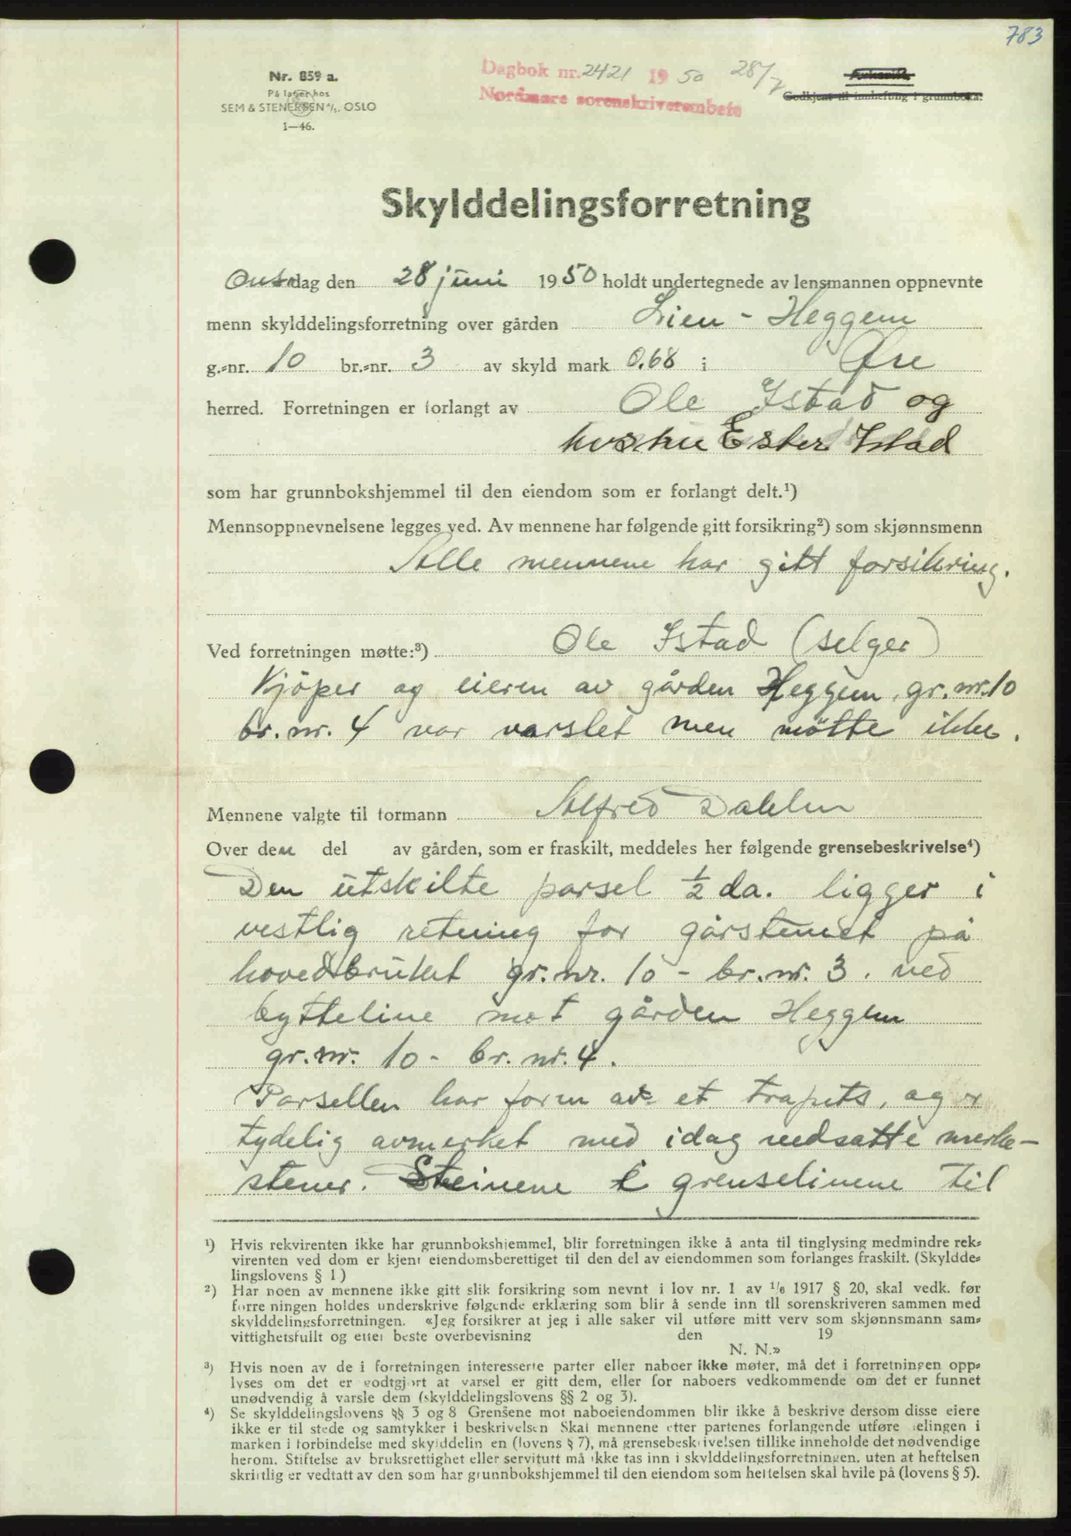 783
Nr. 859 a.
På lager hos
SEM & STENERSEN A/S. OSLO
1—46.
Dagbok nr. 2421 1950 28/7
Nordmøre sorenskriverembete
Godkjent til innheftung i grunnboka.
Skylddelingsforretning
Onsdag den 28 juni 1950 holdt undertegnede av lensmannen oppnevnte
menn skylddelingsforretning over gården Lien - Heggem
g.-nr. 10 br.-nr. 3 av skyld mark 0,68 i Øre
herred. Forretningen er forlangt av Ole Istad og
hustru Ester Istad
som har grunnbokshjemmel til den eiendom som er forlangt delt.¹)
Mennsoppnevnelsene legges ved. Av mennene har følgende gitt forsikring²) som skjønnsmenn
Alle mennene har gitt forsikring.
Ved forretningen møtte:³) Ole Istad (selger)
Kjöper og eieren av gården Heggem, gr.nr. 10
br.nr. 4 var varslet men møtte ikke.
Mennene valgte til formann Alfred Dahlen
Over den del av gården, som er fraskilt, meddeles her følgende grensebeskrivelse⁴)
Den utskilte parsel ½ da. ligger i
vestlig retning for gårstunet på
hovedbruket gr.nr. 10 - br.nr. 3. ved
bytteline mot gården Heggem
gr.nr. 10 - br.nr. 4.
Parsellen har form av et trapets, og er
tydelig avmerket med idag nedsatte merke-
stener. Steinene i grenselinene til
¹) Hvis rekvirenten ikke har grunnbokshjemmel, blir forretningen ikke å anta til tinglysing medmindre rek-
virenten ved dom er kjent eiendomsberettiget til den del av eiendommen som forlanges fraskilt. (Skyldde-
lingslovens § 1)
²) Har noen av mennene ikke gitt slik forsikring som nevnt i lov nr. 1 av 1/6 1917 § 20, skal vedk. før
forretningen holdes underskrive følgende erklæring som blir å sende inn til sorenskriveren sammen med
skylddelingsforretningen. «Jeg forsikrer at jeg i alle saker vil utføre mitt verv som skjønnsmann sam-
vittighetsfullt og etter beste overbevisning den 19
N. N.»
³) Hvis noen av de i forretningen interesserte parter eller naboer ikke møter, må det i forretningen opp-
lyses om det er godtgjort at varsel er gitt dem, eller for naboers vedkommende om det er funnet
unødvendig å varsle dem (skylddelingslovens §§ 2 og 3).
⁴) Se skylddelingslovens §§ 3 og 8 Grensene mot naboeiendommen blir ikke å beskrive dersom disse eiere
ikke er til stede og samtykker i beskrivelsen Skal mennene etter partenes forlangende utføre delingen i
marken i forbindelse med skylddelingen (lovens § 7), må grensebeskrivelsen tillike inneholde det nødvendige
herom. Stiftelse av bruksrettighet eller servitutt må ikke tas inn i skylddelingsforretningen, uten at heftelsen
skriftlig er vedtatt av den som har grunnbokshjemmel til den eiendom som heftelsen skal hvile på (lovens § 5).